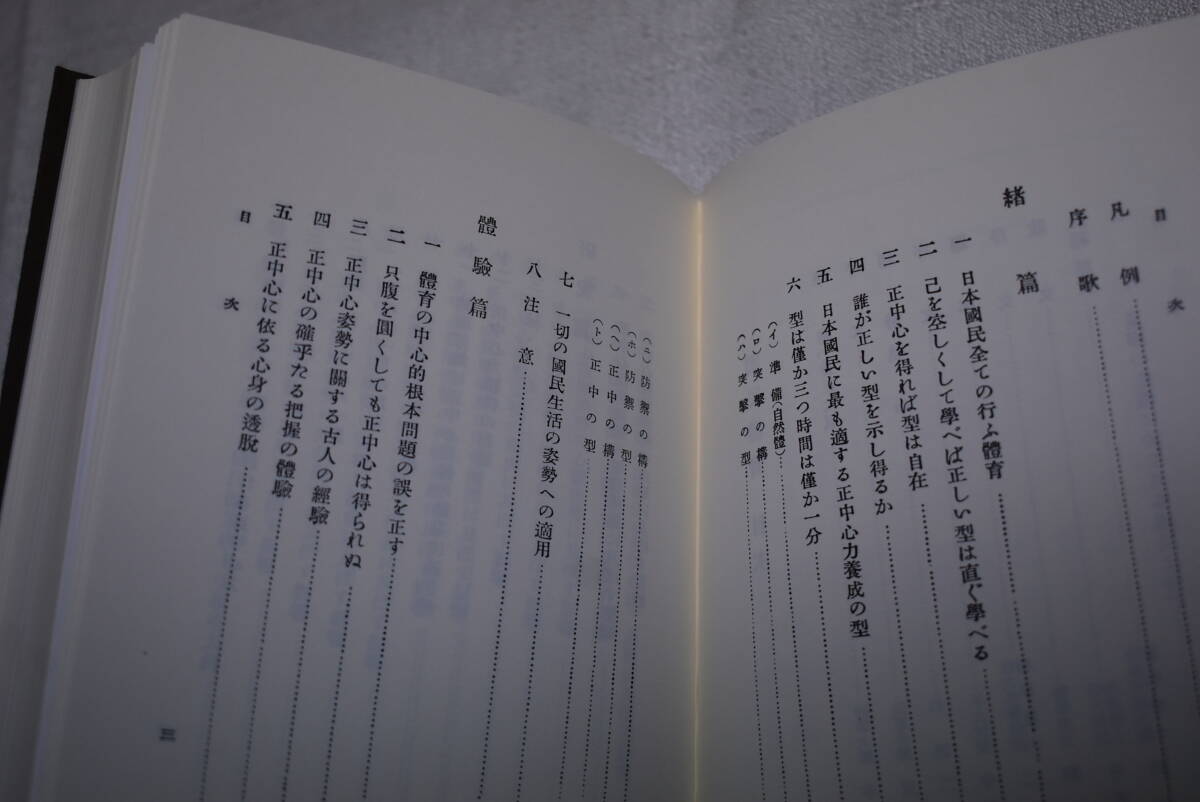 目次
凡例
序歌
緖篇
一 日本國民全ての行ふ體育
二 己を空しくして學べば正しい型は直ぐ學べる
三 正中心を得れば型は自在
四 誰が正しい型を示し得るか
五 日本國民に最も適する正中心力養成の型
六 型は僅か三つ時間は僅か一分
(イ) 準備(自然體)
(ロ) 突擊の構
(ハ) 突擊の型
(ニ) 防禦の構
(ホ) 防禦の型
(ヘ) 正中の構
(ト) 正中の型
七 一切の國民生活の姿勢への適用
八 注意
體驗篇
一 體育の中心的根本問題の誤を正す
二 只腹を圓くしても正中心は得られぬ
三 正中心姿勢に關する古人の經驗
四 正中心の確乎たる把握の體驗
五 正中心に依る心身の透脫
目次
三